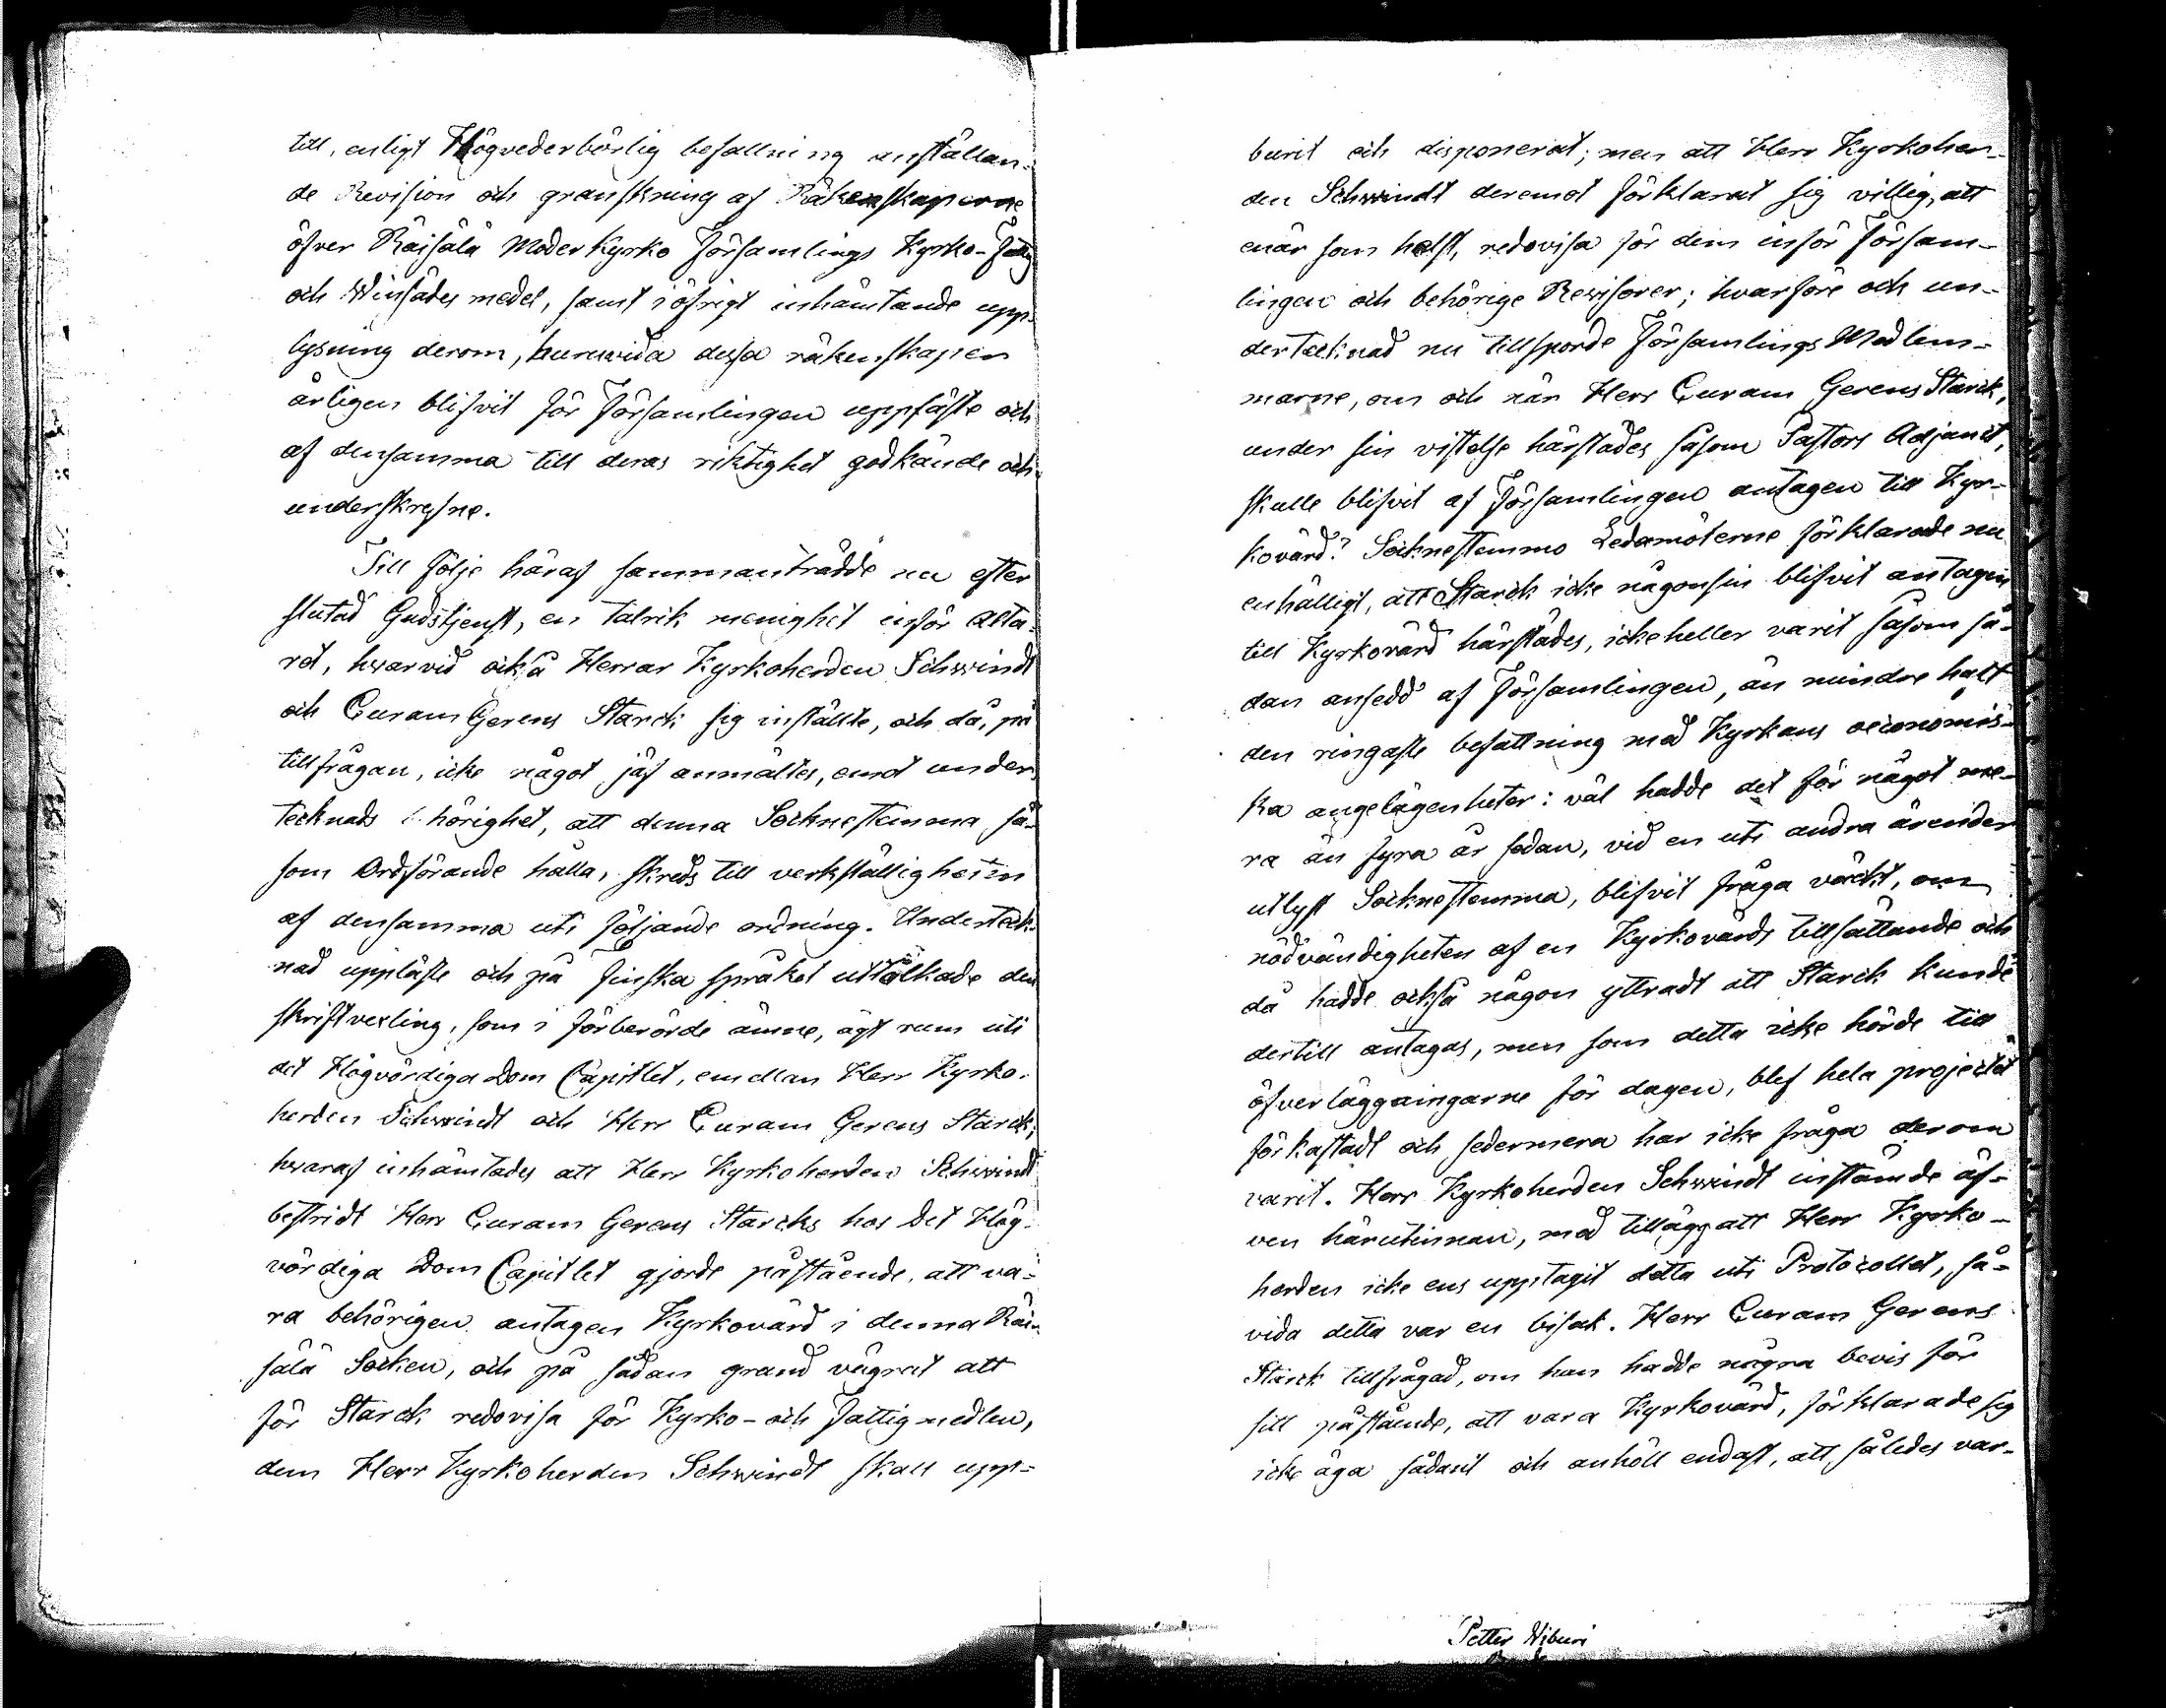 till, enligt Högvederbörlig befallning anställan-
de Revision och granskning af Räkenskaperne
öfver Räisälä Moderkyrko Församlings Kyrko- Fattig
och Winsädes medel, samt i öfrigt inhämtande upp-
lysning derom, huruvida dessa räkenskapen
årligen blifvit för Församlingen uppläste och
af densamma till deras riktighet godkände och
underskrefne.
Till följe häraf sammanträdde nu efter
slutad Gudstjenst, en talrik menighet inför Alta-
ret, hvarvid också Herrar Kyrkoherden Schwindt
och Curam Gerens Starck sig inställte, och då, på
tillfrågan, icke något jäf anmältes, emot under-
tecknads behörighet, att denna Socknestemma så-
som Ordförande hålla, skreds till verkställigheten
af densamma uti följande ordning. Underteck-
nad uppläste och på Finska språket uttolkade den
skriftvexling, som i förberörde ämne, ägt rum uti
det Högvördiga Dom Capitlet, emellan Herr Kyrko-
herden Schwindt och Herr Curam Gerens Starck;
hvaraf inhämtades att Herr Kyrkoherden Schwindt
bestridt Herr Curam Gerens Starcks hos Det Hög-
vördiga Dom Capitlet gjorde påstående, att va-
ra behörigen antagen Kyrkovärd i denna Räi-
sälä Socken, och på sådan grund vägrat att
för Starck redovisa för Kyrko- och Fattigmedlen,
dem Herr Kyrkoherden Schwindt skall upp-
burit och disponerat; men att Herr Kyrkoher-
den Schwindt deremot förklarat sig villig, att
enär som helst, redovisa för dem inför Försam-
lingen och behörige Revisorer; hvarföre och un-
dertecknad nu tillsporde Församlings Medlem-
marne, om och när Herr Curam Gerens Starck,
under sin vistelse härstädes såsom Pastors Adjunct,
skulle blifvit af Församlingen antagen till Kyr-
kovärd? Socknestemmo Ledamöterne förklarade nu
enhälligt, att Starck icke någonsin blifvit antagen
till Kyrkovärd härstädes, icke heller varit såsom så-
dan ansedd af Församlingen, än mindre haft
den ringaste befattning med Kyrkans oeconomis-
ka angelägenheter: väl hadde det för något me-
ra än fyra år sedan, vid en uti andra ärender
utlyst Socknestemma, blifvit fråga väckt, om
nödvändigheten af en Kyrkovärds tillsättande och
då hadde också någon yttradt att Starck kunde
dertill antagas, men som detta icke hörde till
öfverläggningarne för dagen, blef hela projectet
förkastadt och sedermera har icke fråga derom
varit. Herr Kyrkoherden Schwindt instämde äf-
ven härutinnan, med tillägg att Herr Kyrko-
herden icke ens upptagit detta uti Protocollet, så-
vida detta var en bisak. Herr Curam Gerens
Starck tillfrågad, om han hadde några bevis för
sitt påstående, att vara Kyrkovärd, förklarade sig
icke äga sådant och anhöll endast, att således var-
Petter